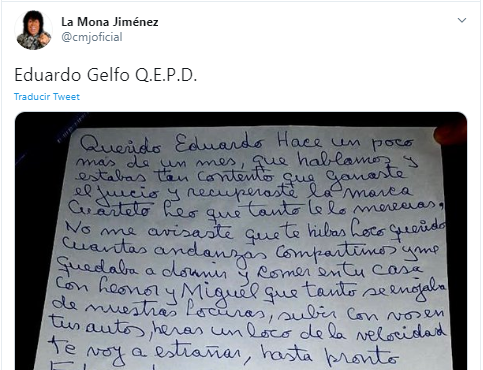 La Mona Jiménez
@cmjoficial
Eduardo Gelfo Q.E.P.D.
Traducir Tweet
Querido Eduardo Hace un poco
más de un mes, que hablamos y
estabas tan contento que ganaste
el juicio y recuperaste la marca
Cuarteto Leo que tanto te lo merecias,
No me avisaste que te hibas Loco querido
Cuantas andanzas compartimos y me
quedaba a dormir y comer en tu casa
Con Leonor y Miguel que tanto se enojaba
de nuestras Locuras, subir con vos en
tus autos, heras un loco de la velocidad
Te voy a estrañar, hasta pronto